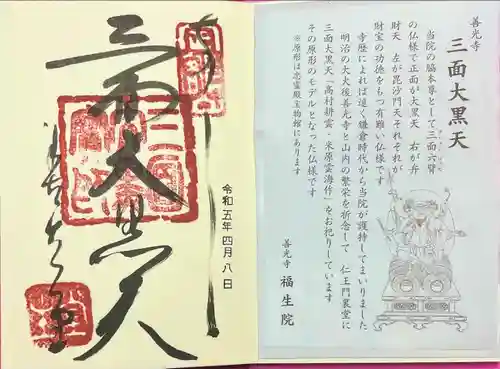 善光寺
三面大黒天
当院の脇本尊として三面六臂
の仏様で正面が大黒天　右が弁
財天　左が毘沙門天それぞれが
財宝の功徳をもつ有難い仏様です
寺歴によれば遠く鎌倉時代から当院が護持してまいりました
明治の大火後善光寺と山内の繁栄を祈念して　仁王門裏堂に
三面大黒天「高村耕雲・米原雲海作」をお祀りしています
その原形のモデルとなった仏様です
※原形は忠霊殿宝物館にあります
善光寺　福生院
令和五年四月八日
三面大黒天